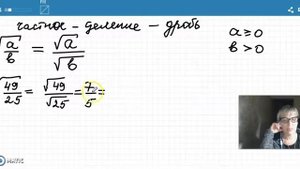 частное - деление - дробь
√a/b = √a/√b
a ≥ 0
b > 0
√49/25 = √49/√25 = 7/5 =